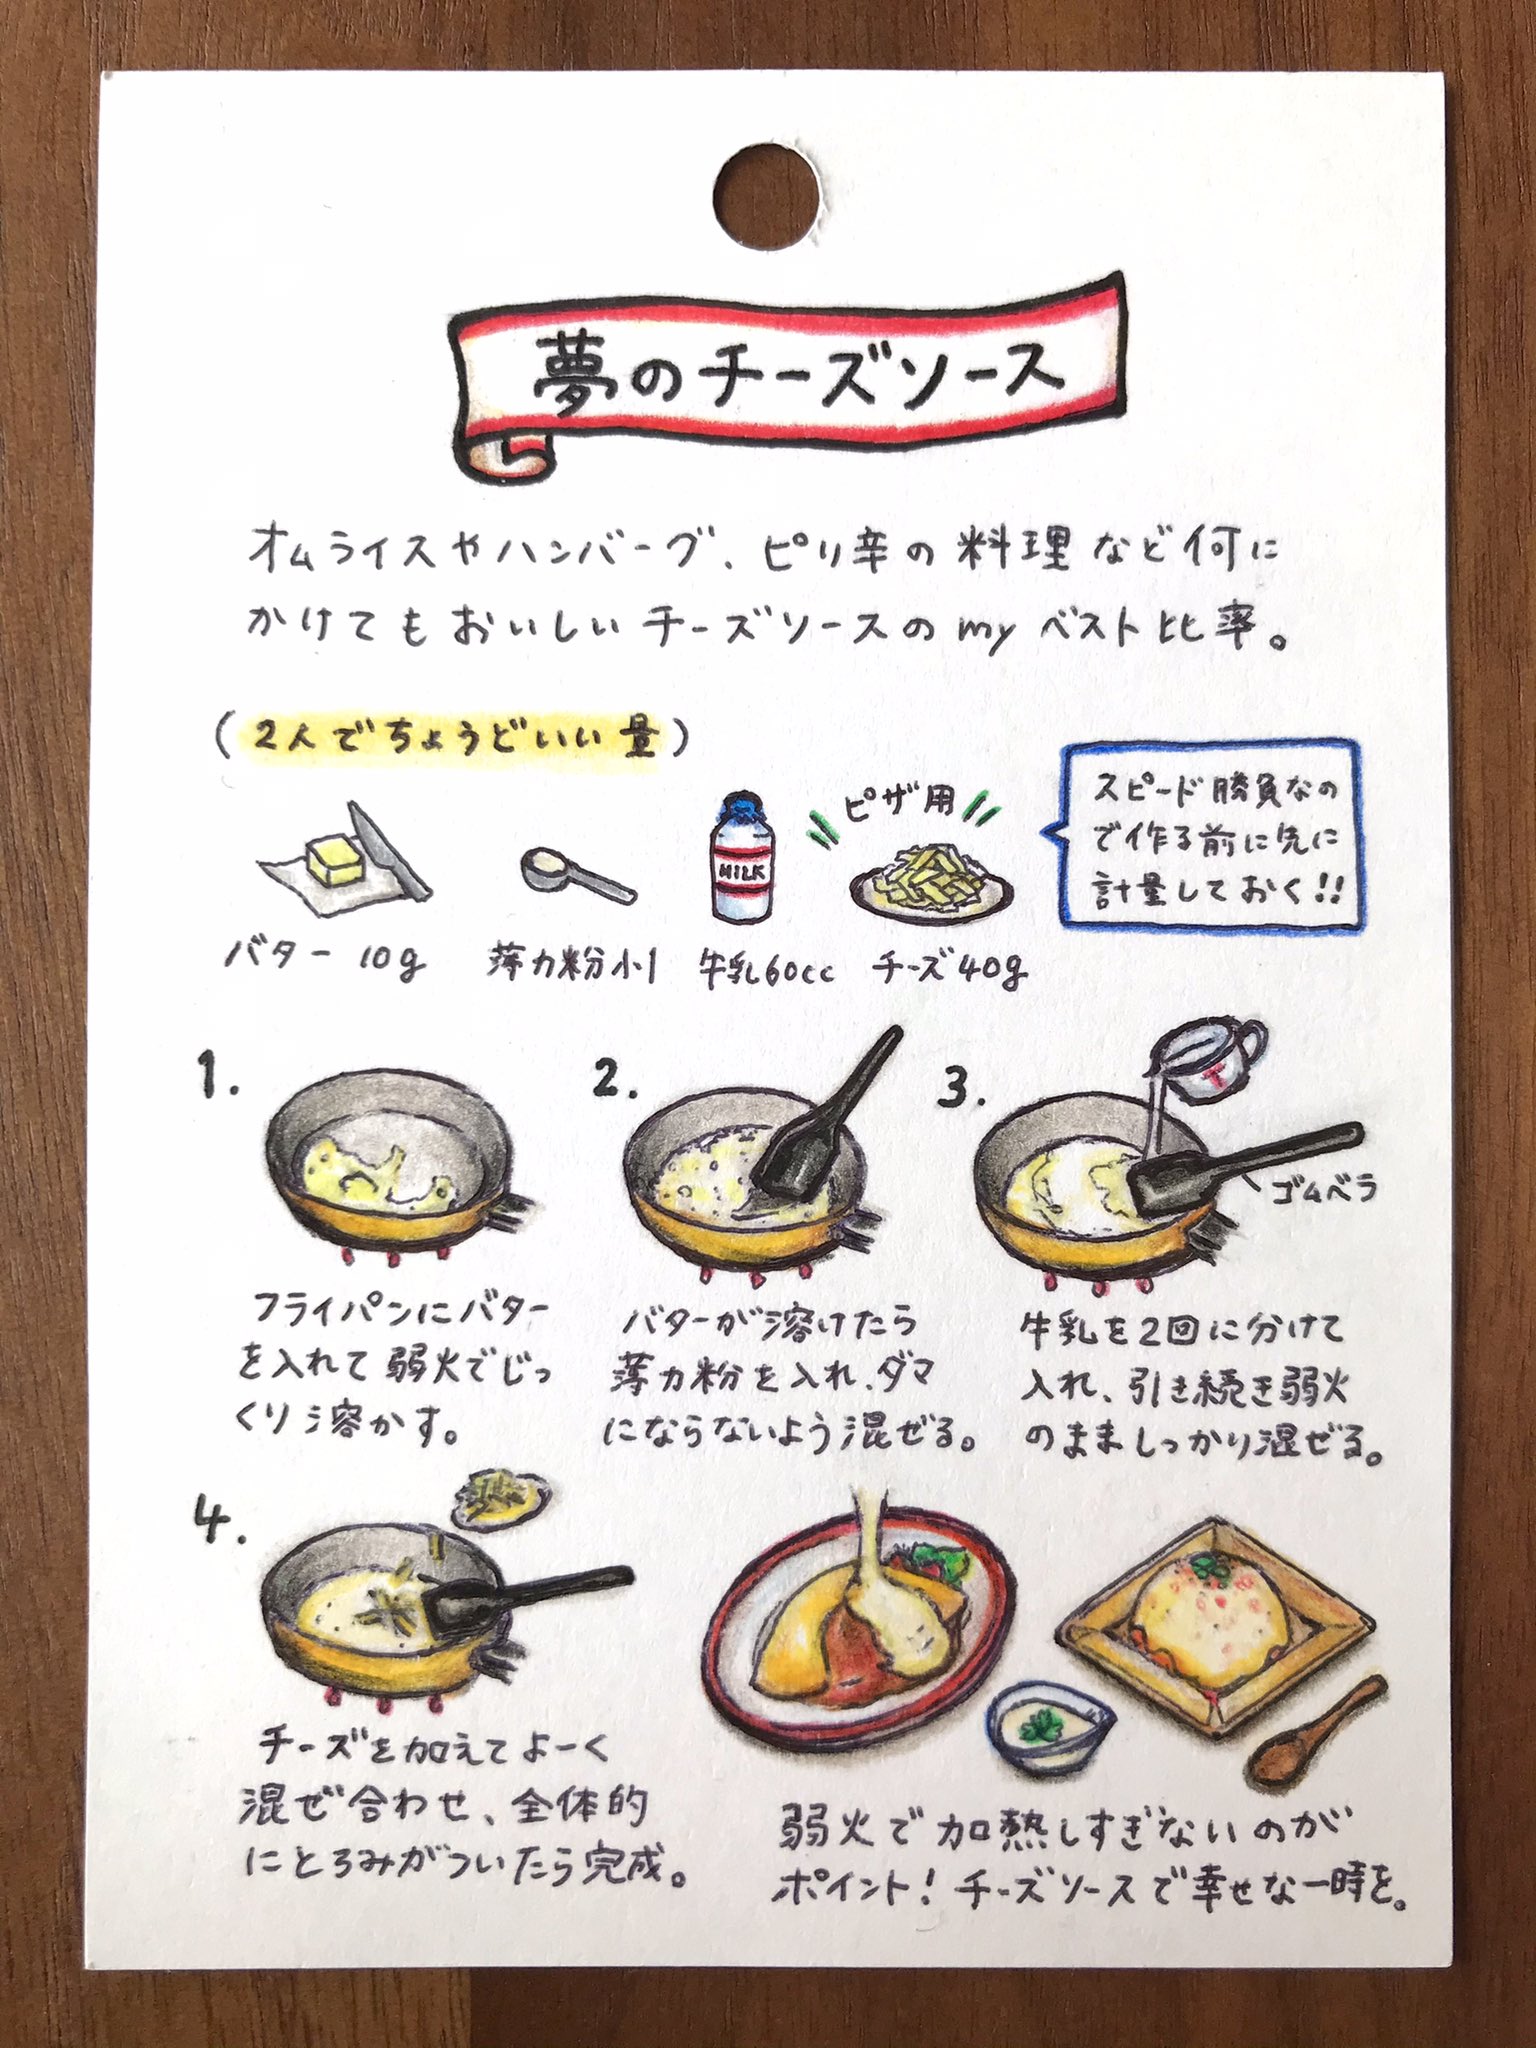 夢のチーズソース
オムライスやハンバーグ、ピリ辛の料理など何に
かけてもおいしいチーズソースのmyベスト比率。
(2人でちょうどいい量)
ピザ用
スピード勝負なの
で作る前に先に
計量しておく!!
MILK
バター 10g
薄力粉小1
牛乳60cc
チーズ40g
1.
フライパンにバター
を入れて弱火でじっ
くり溶かす。
2.
バターが溶けたら
薄力粉を入れ、ダマ
にならないよう混ぜる。
3.
ゴムベラ
牛乳を2回に分けて
入れ、引き続き弱火
のまましっかり混ぜる。
4.
チーズを加えてよーく
混ぜ合わせ、全体的
にとろみがついたら完成。
弱火で加熱しすぎないのが
ポイント!チーズソースで幸せな一時を。